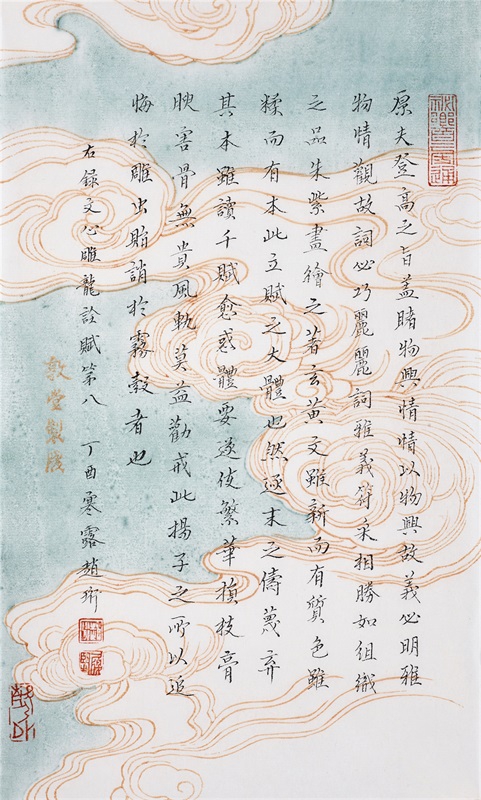 原夫登高之旨蓋睹物興情情以物興故義必明雅
物情觀故詞必巧麗麗詞雅義符采相勝如組織
之品朱紫畫繪之著玄黃文雖新而有質色雖
糅而有本此立賦之大體也然逐末之儔蔑弃
其本雖讀千賦愈惑體要遂使繁華損枝膏
腴害骨無貴風軌莫益勸戒此揚子之所以追
悔於雕虫貽誚於霧縠者也
右錄文心雕龍詮賦第八 丁酉寒露趙珩